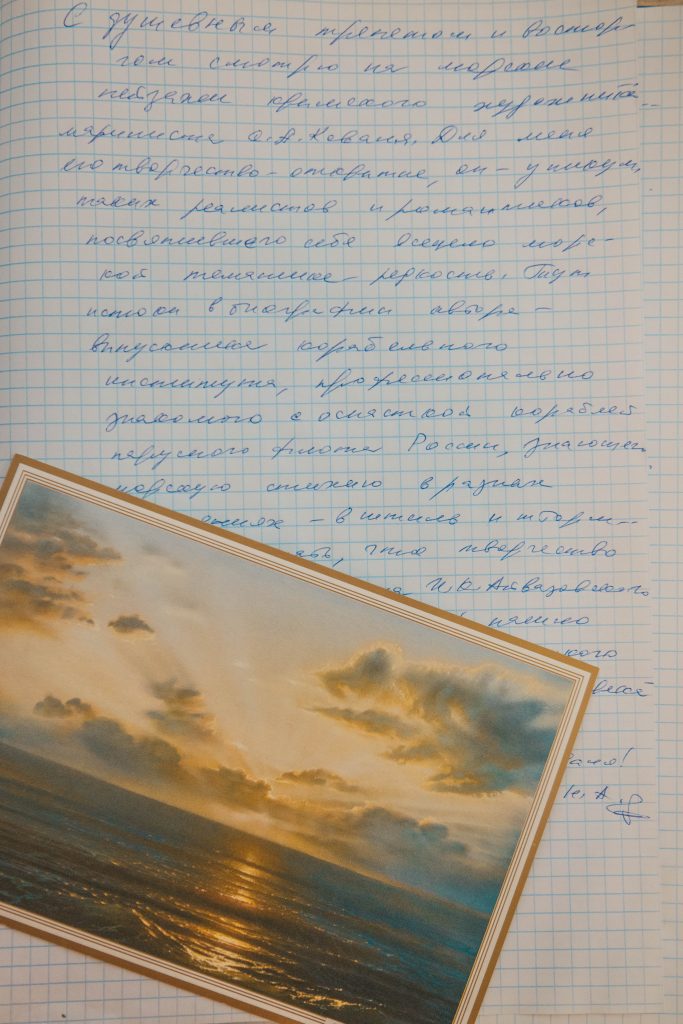 С душевным трепетом и востор-
гом смотрю на морские
пейзажи крымского художника-
мариниста О.А. Коваля. Для меня
его творчество - открытие, он - уникум,
таких реалистов и романтиков,
посвятившего себя всецело морс-
кой тематике - редкость. Тут
истоки в биографии автора -
выпускника корабельного
института, профессионально
знакомого с оснасткой кораблей
парусного флота России, знающего
морскую стихию в разных
- в штиль и шторм..
что творчество
И.К. Айвазовского
нашло